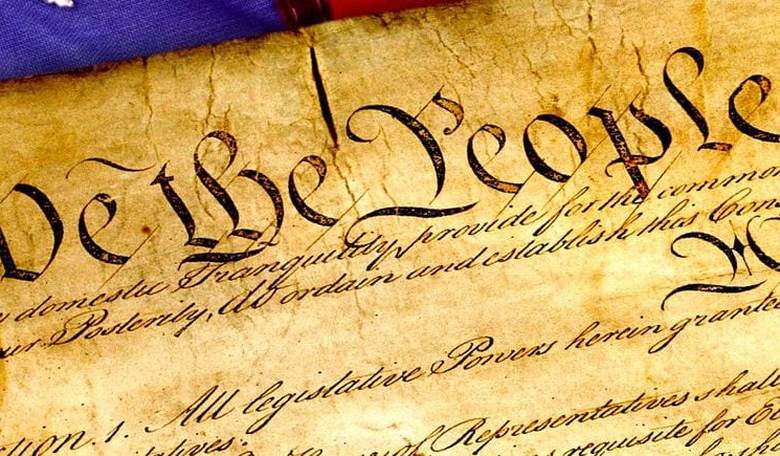 We the People
domestic Tranquility, provide for the common
our Posterity, do ordain and establish this Con
ction. 1. All legislative Powers herein grante
tatives.
of Representatives shall
requisite for